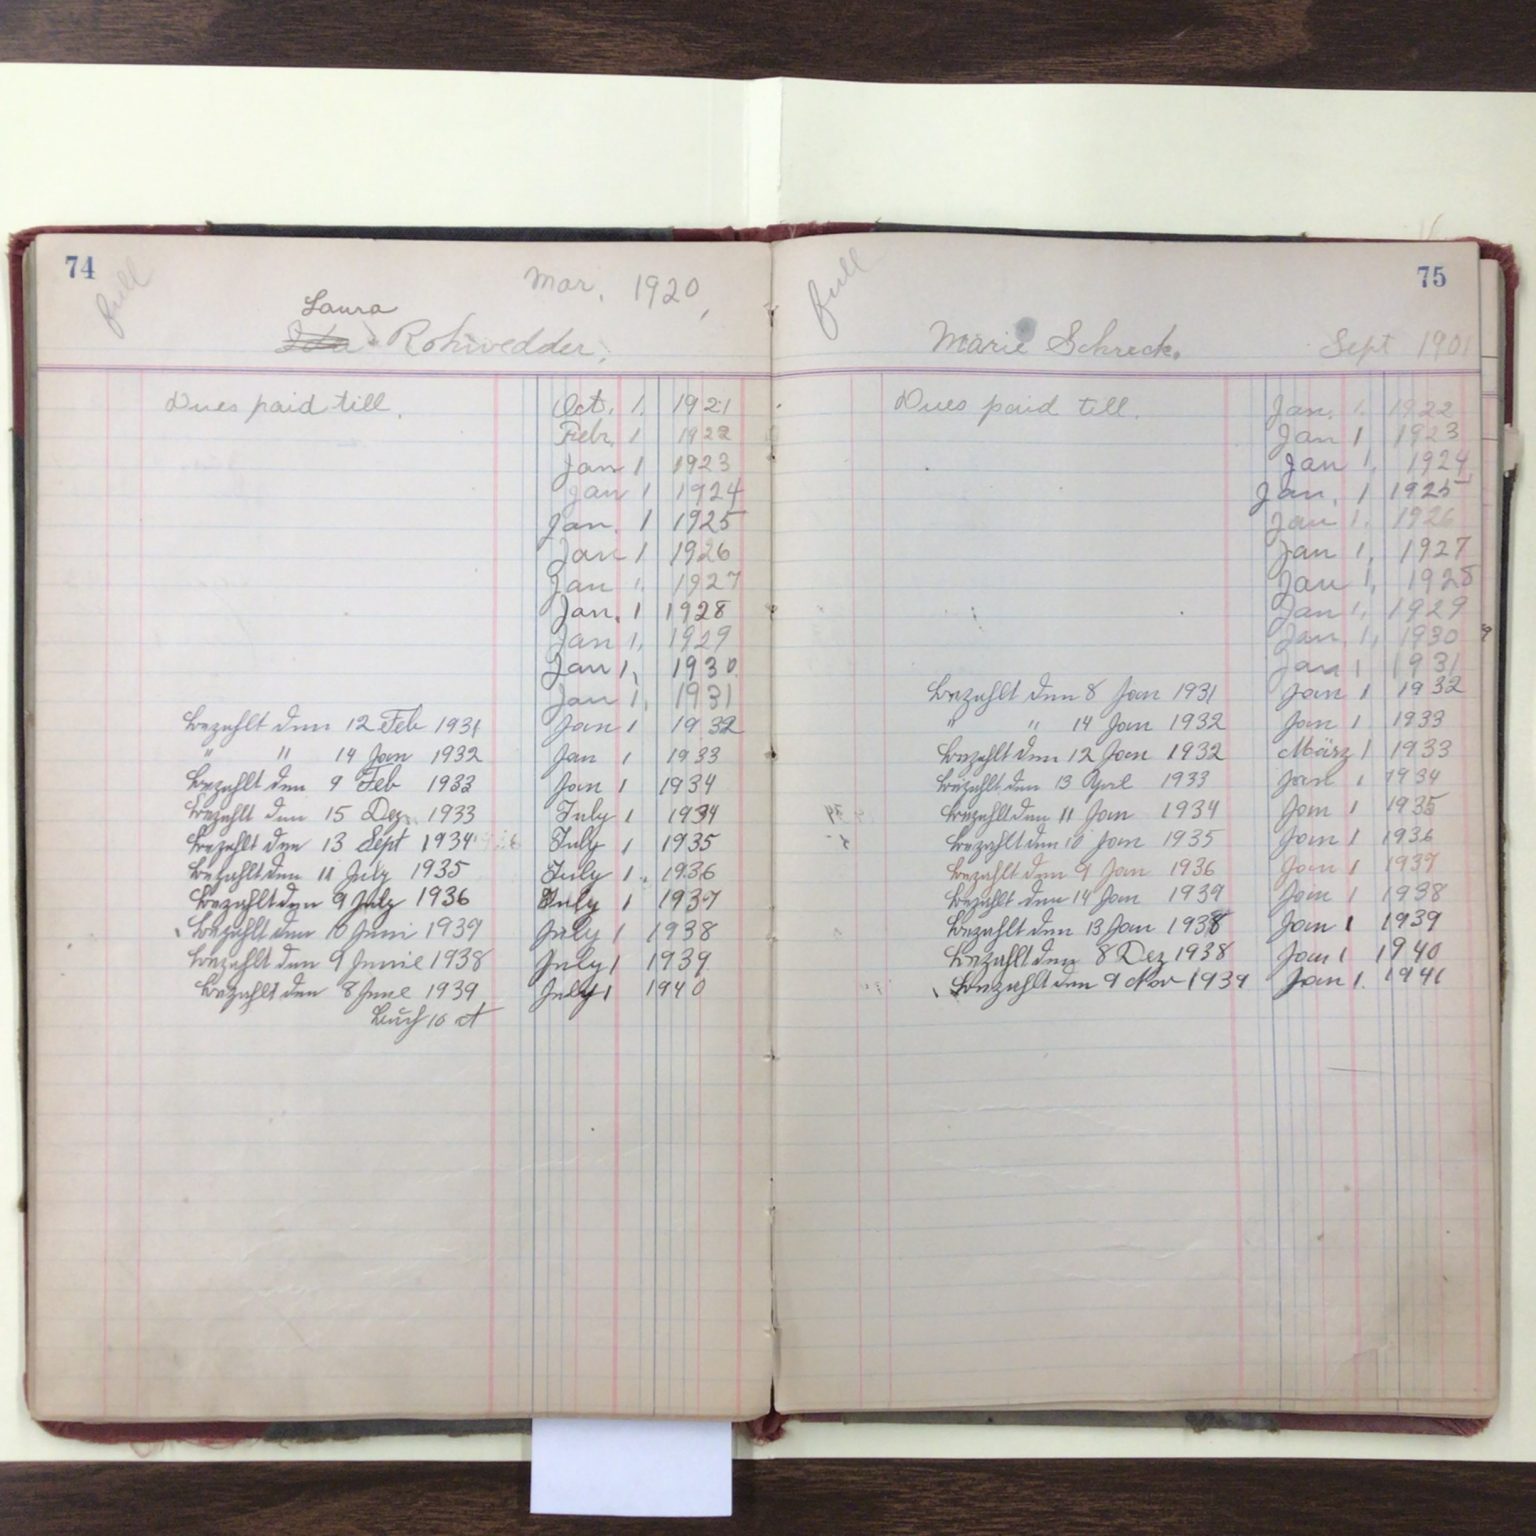 74
full
Mar. 1920,
Laura
Ida Rohwedder.
Dues paid till. Oct. 1. 1921
Febr. 1 1922
Jan 1 1923
Jan 1 1924
Jan. 1 1925
Jan 1 1926
Jan 1. 1927
Jan. 1 1928
Jan 1, 1929
Jan 1, 1930
Jan 1, 1931
bezahlt den 12 Feb 1931 Jan 1 1932
" " 14 Jan 1932 Jan 1 1933
bezahlt den 9 Feb 1933 Jan 1 1934
bezahlt den 15 Dez. 1933 July 1 1934
bezahlt den 13 Sept 1934 July 1 1935
bezahlt den 11 July 1935 July 1. 1936
bezahlt den 9 July 1936 July 1 1937
bezahlt den 10 Juni 1937 July 1 1938
bezahlt den 9 Junie 1938 July 1 1939
bezahlt den 8 June 1939 July 1 1940
Buch 10 ct
75
full
Marie Schreck. Sept 1901
Dues paid till. Jan. 1. 1922
Jan 1 1923
Jan 1. 1924
Jan. 1 1925
Jan 1. 1926
Jan 1. 1927
Jan 1, 1928
Jan 1, 1929
Jan. 1, 1930
Jan 1 1931
bezahlt den 8 Jan 1931 Jan 1 1932
" " 14 Jan 1932 Jan 1 1933
bezahlt den 12 Jan 1932 März 1 1933
bezahlt den 13 April 1933 Jan 1 1934
bezahlt den 11 Jan 1934 Jan 1 1935
bezahlt den 10 Jan 1935 Jan 1 1936
bezahlt den 9 Jan 1936 Jan 1 1937
bezahlt den 14 Jan 1937 Jan 1 1938
bezahlt den 13 Jan 1938 Jan 1 1939
bezahlt den 8 Dez 1938 Jan 1 1940
bezahlt den 9 Nov 1939 Jan 1. 1941